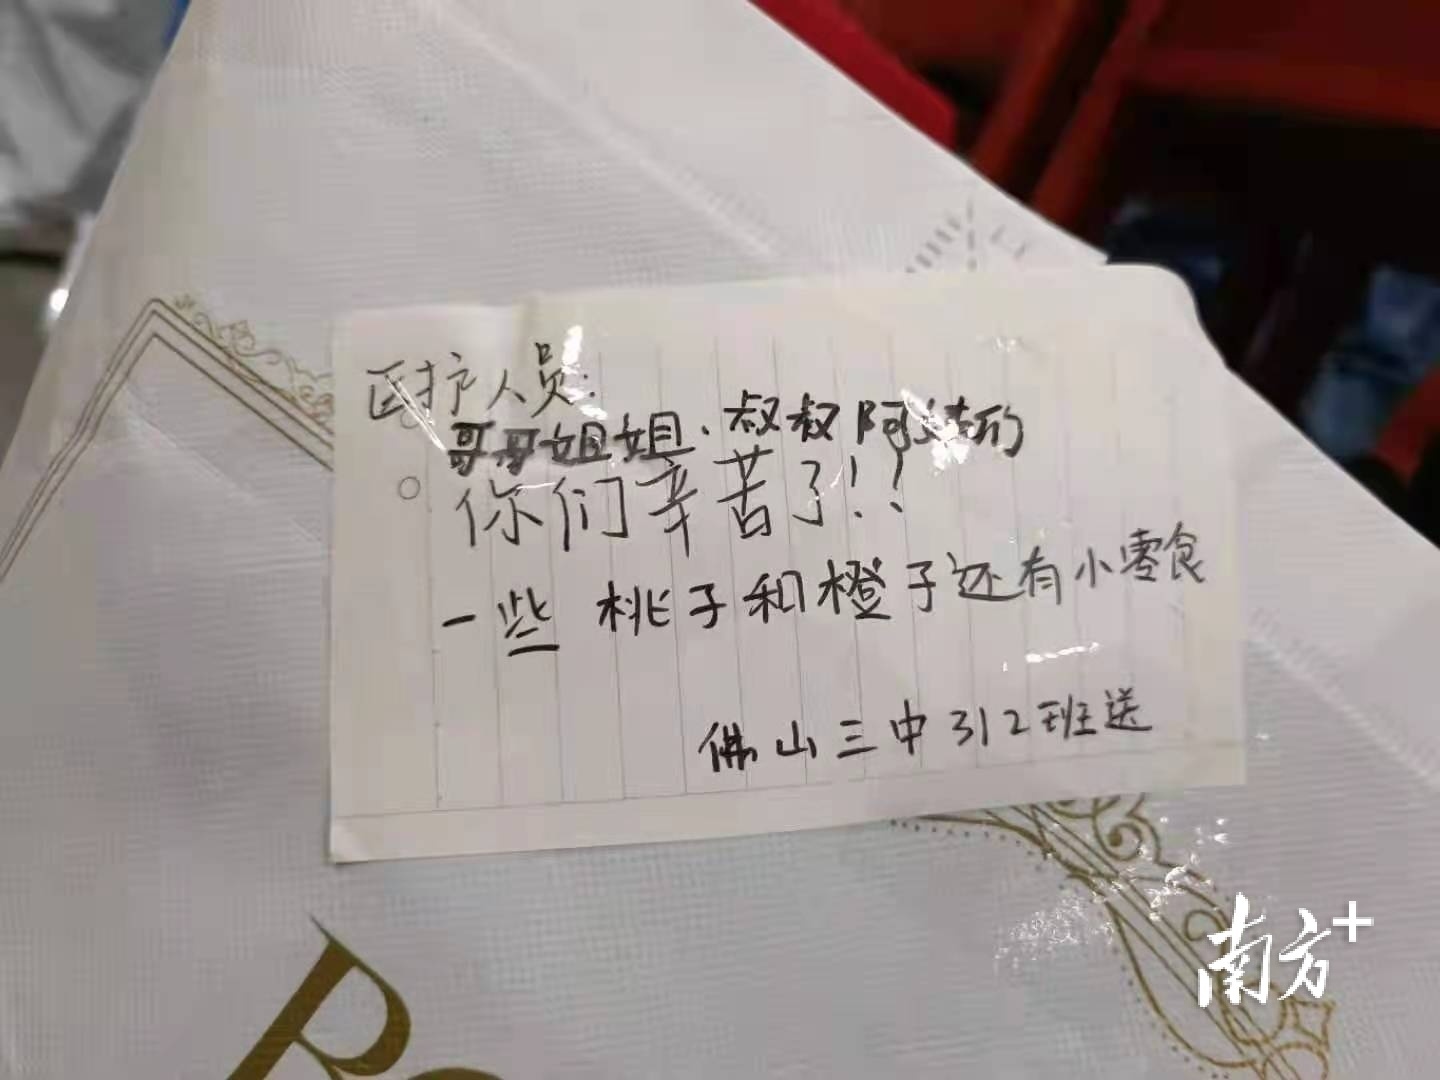 医护人员:
哥哥姐姐、叔叔阿姨们
你们辛苦了!!
一些 桃子和橙子还有小零食
佛山三中312班送
南方+